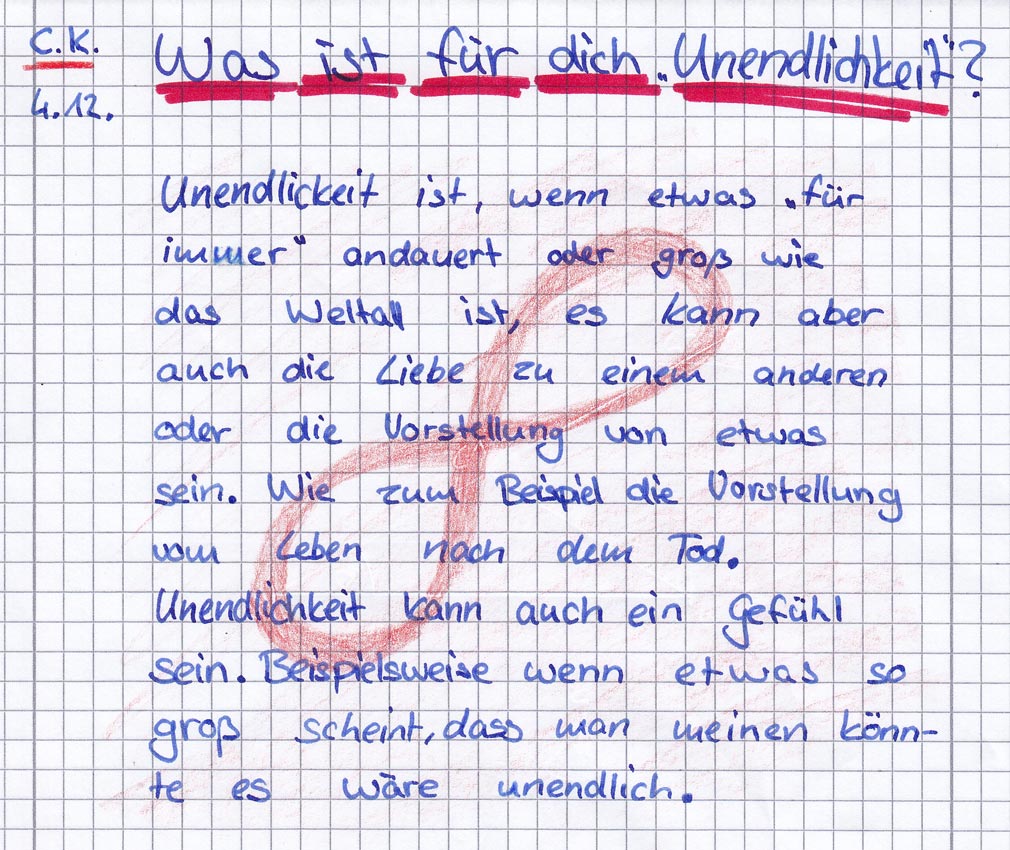 C.K.
Was ist für dich „Unendlichkeit"?
4.12.
Unendlickeit ist, wenn etwas „für
immer" andauert oder groß wie
das Weltall ist, es kann aber
auch die Liebe zu einem anderen
oder die Vorstellung von etwas
sein. Wie zum Beispiel die Vorstellung
vom Leben nach dem Tod.
Unendlichkeit kann auch ein Gefühl
sein. Beispielsweise wenn etwas so
groß scheint, dass man meinen könn-
te es wäre unendlich.